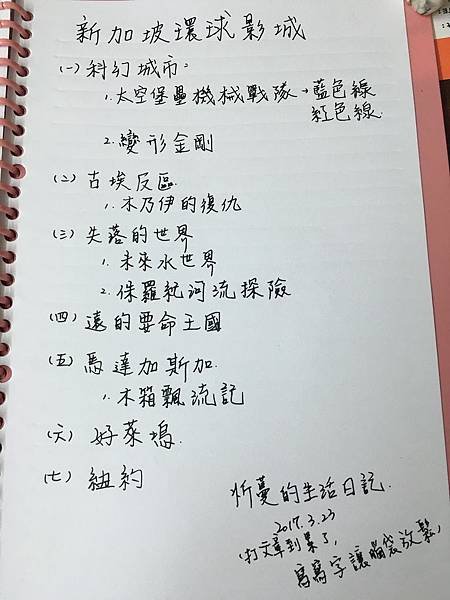 新加坡環球影城
(一) 科幻城市:
1. 太空堡壘機械戰隊→藍色線
紅色線.
2. 變形金剛
(二) 古埃及區.
1. 木乃伊的復仇
(三) 失落的世界
1. 未來水世界
2. 侏羅紀河流探險
(四) 遠的要命王國
(五) 馬達加斯加.
1. 木箱飄流記
(六) 好萊塢.
(七) 紐約
忻蔓的生活日記.
2017.3.23
(打文章到累了,
寫寫字讓腦袋放鬆)